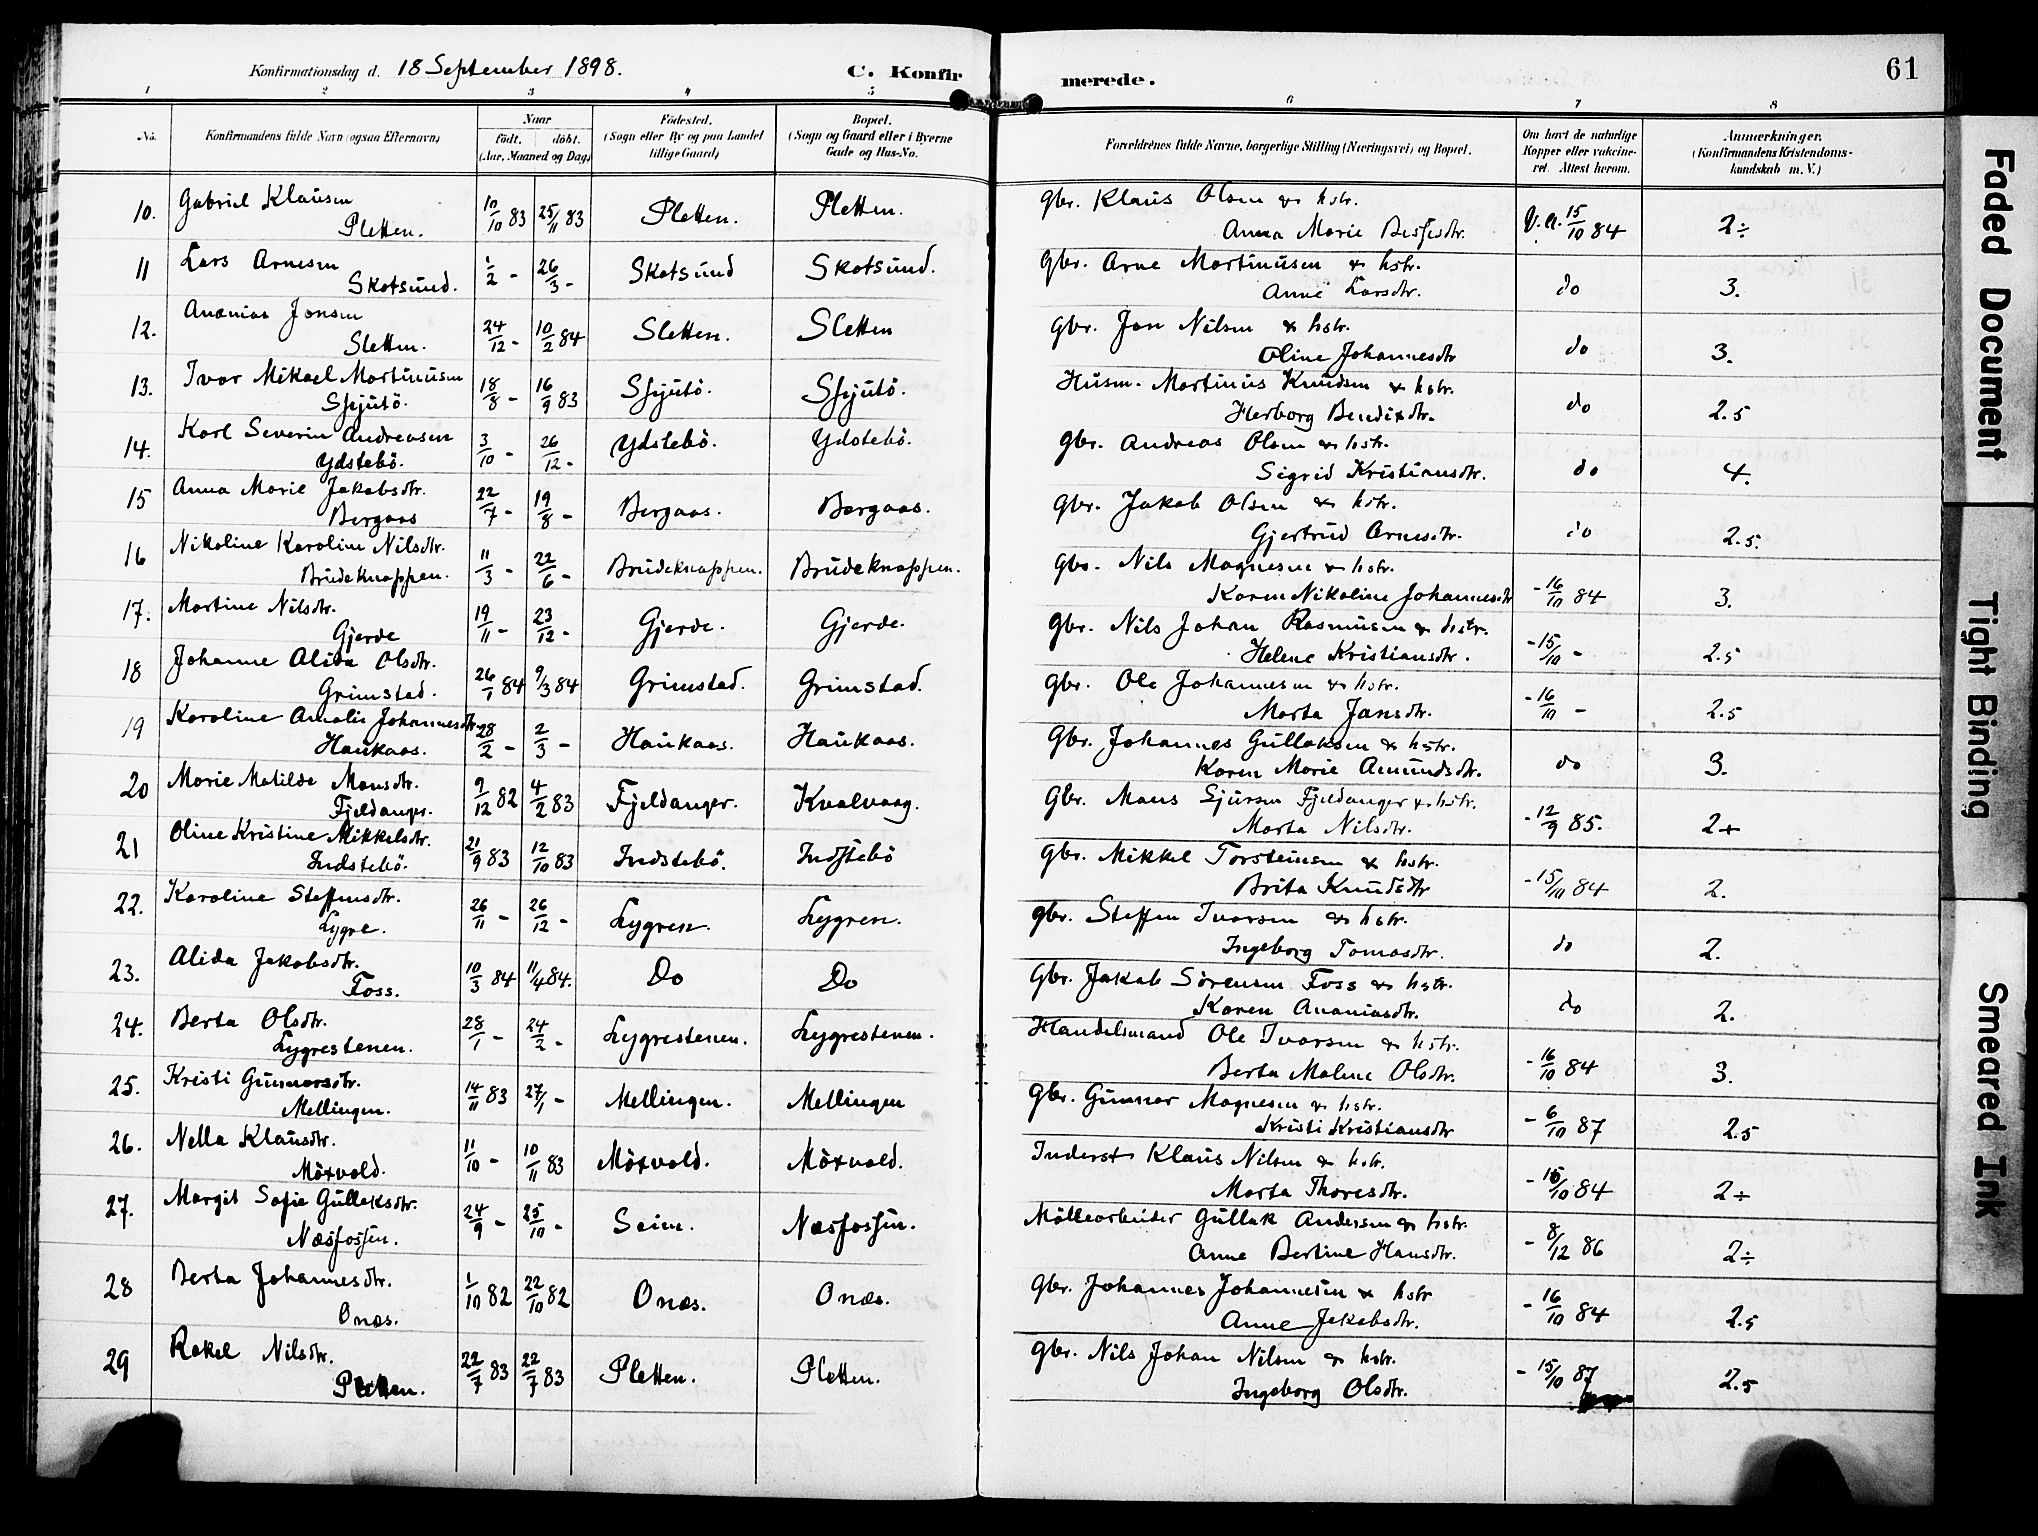 Konfirmationsdag d. 18 September 1898. C. Konfirmerede. 61
1 2 3 4 5 6 7 8
No. Konfirmandens fulde Navn (ogsaa Efternavn) Naar födt. döbt. (Aar, Maaned og Dag) Födested. (Sogn eller By og paa Landet tillige Gaard) Bopæl. (Sogn og Gaard eller i Byerne Gade og Hus-No. Forældrenes fulde Navne, borgerlige Stilling (Næringsvei) og Bopæl. Om havt de naturlige Kopper eller vakcineret. Attest herom. Anmærkninger. (Konfirmandens Kristendomskundskab m. V.)
10. Gabriel Klausen Pletten. 10/10 83 25/11 83 Pletten. Pletten. Gbr. Klaus Olsen & hstr.
Anna Marie V.a. 15/10 84 2÷
11 Lars Arnesen Skotsund. 1/2 - 26/3 - Skotsund Skotsund. Gbr. Arne Martinusen & hstr.
Anne Larsdtr. do 3.
12. Ananias Jonsen Sletten. 24/12 - 10/2 84 Sletten. Sletten Gbr. Jon Nilsen & hstr.
Oline Johannesdtr do 3.
13. Ivar Mikael Martinusen Spjutö. 18/8 - 16/9 83 Spjutö. Spjutö. Husm. Martinus Knudsen & hstr.
Herborg Bendixdtr. do 2.5
14. Karl Severin Andreasen Ydstebö. 3/10 - 26/12 - Ydstebö. Ydstebö. Gbr. Andreas Olsen & hstr.
Sigrid Kristiansdtr. do 4.
15 Anna Marie Jakobsdtr. Bergaas 22/7 - 19/8 - Bergaas. Bergaas. Gbr. Jakob Olsen & hstr.
Gjertrud Arnesdtr. do 2.5.
16 Nikoline Karoline Nilsdtr. Brudeknappen. 11/3 - 22/6 - Brudeknappen. Brudeknappen. Gbr. Nils Magnesen & hstr.
Karen Nikoline Johannesdtr - 16/10 84 3.
17. Martine Nilsdtr. Gjerde 19/11 - 23/12 - Gjerde. Gjerde. Gbr. Nils Johan Rasmusen & hstr.
Helene Kristiansdtr. - 15/10 - 2.5
18 Johanne Alida Olsdtr. Grimstad. 26/1 84 9/3 84 Grimstad. Grimstad. Gbr. Ole Johannesen & hstr.
Marta Jansdtr. - 16/10 - 2.5
19 Karoline Amalie Johannesdtr. Haukaas. 28/2 - 2/3 - Haukaas. Haukaas. Gbr. Johannes Gullaksen & hstr.
Karen Marie Amundsdtr. do 3.
20 Marie Matilde Monsdtr. Fjeldanger. 9/12 82 4/2 83 Fjeldanger. Kvalvaag. Gbr. Mons Sjursen Fjeldanger & hstr.
Marta Nilsdtr. - 12/9 85. 2+
21 Oline Kristine Mikkelsdtr. Indstebö. 21/9 83 12/10 83 Indstebö. Indstebö Gbr. Mikkel Torsteinsen & hstr.
Brita Knudsdtr - 15/10 84 2.
22. Karoline Steffensdtr. Lygre. 26/11 - 26/12 - Lygren. Lygren. Gbr. Steffen Ivarsen & hstr.
Ingeborg Tomasdtr. do 2.
23. Alida Jakobsdtr. Foss. 10/3 84 11/4 84. Do Do Gbr. Jakob Sörensen Foss & hstr.
Karen Ananiasdtr. do 2.
24. Berta Olsdtr. Lygrestenen. 28/1 - 24/2 - Lygrestenen. Lygrestenen. Handelsmand Ole Ivarsen & hstr.
Berta Malene Olsdtr. - 16/10 84 3.
25. Kristi Gunnarsdtr. Mellingen. 14/11 83 27/1 - Mellingen. Mellingen Gbr. Gunnar Magnesen & hstr.
Kristi Kristiansdtr - 6/10 87 2.5
26. Nella Klausdtr. Möxvold. 11/10 - 10/11 83 Möxvold. Möxvold. Inderst Klaus Nilsen & hstr.
Marta Thoresdtr. - 15/10 84 2÷
27. Margit Sofie Gullaksdtr. Næsfossen. 24/9 - 25/10 - Seim. Næsfossen. Möllearbeider Gullak Andersen & hstr.
Anne Bertine Hansdtr. - 8/12 86 2÷
28 Berta Johannesdtr. Onæs. 1/10 82 22/10 82 Onæs. Onæs. Gbr. Johannes Johannesen & hstr
Anne Jakobsdtr. - 16/10 84 2.5
29 Rakel Nilsdtr. Pletten. 22/7 83 22/7 83 Pletten. Pletten. Gbr. Nils Johan Nilsen & hstr.
Ingeborg Olsdtr. - 15/10 87 2.5
Faded Document
Tight Binding
Smeared Ink